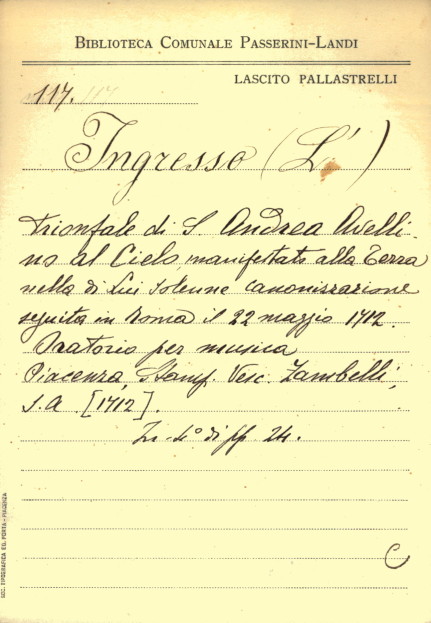 BIBLIOTECA COMUNALE PASSERINI-LANDI
LASCITO PALLASTRELLI
117. 117
Ingresso (L')
trionfale di S. Andrea Avelli-
no al Cielo, manifestata alla Terra
nella di Lui solenne canonizzazione
seguita in Roma il 22 maggio 1712.
Oratorio per musica
Piacenza, Stamp. Vesc. Zambelli,
S.A. [1712].
In 4° di ff. 24.
C
SOC. TIPOGRAFICA ED. PORTA - PIACENZA